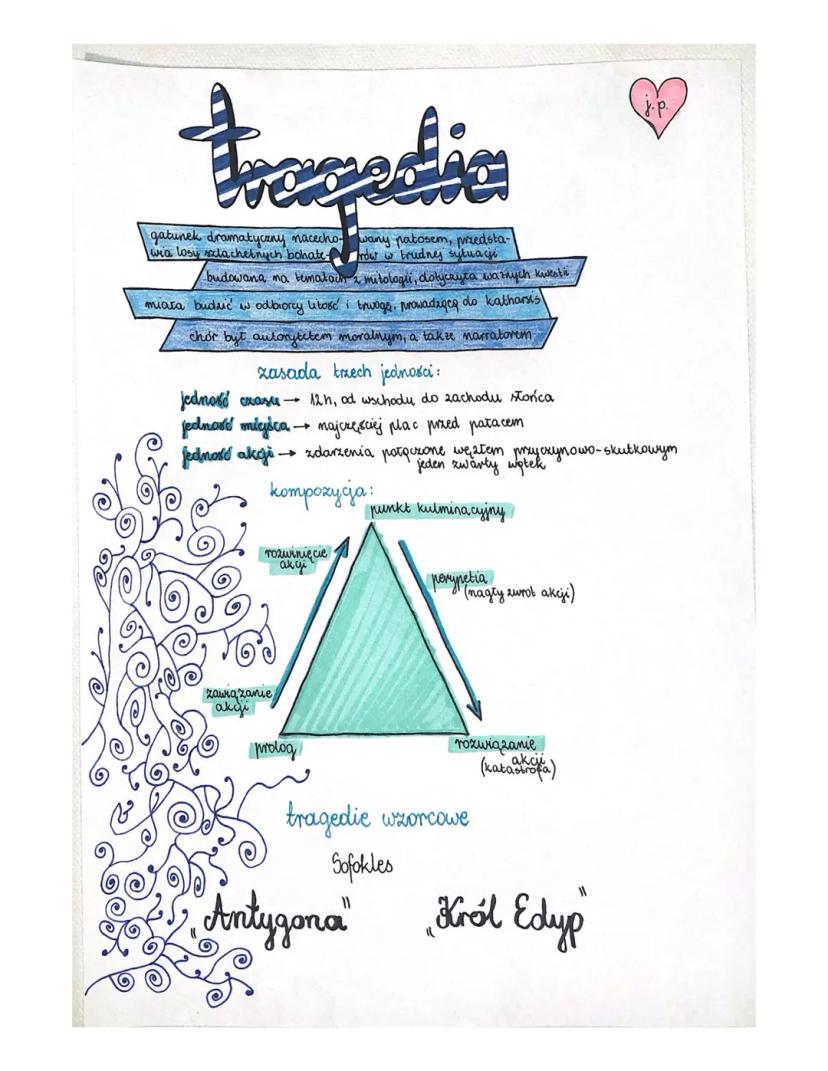 j.p.
tragedia
gatunek dramatyczny nacecho- wany patosem, przedsta-
wia losy szlachetnych bohate- rów w trudnej sytuacji
budowana na tematach z mitologii, dotycząca ważnych kwestii
miała budzić w odbiorcy litość i trwogę, prowadzącą do katharsis
chór był autorytetem moralnym, a także narratorem
zasada trzech jedności:
jedność czasu → 12h, od wschodu do zachodu słońca
jedność miejsca → najczęściej plac przed pałacem
jedność akcji → zdarzenia połączone węzłem przyczynowo-skutkowym
jeden zwarty wątek
kompozycja:
punkt kulminacyjny
rozwinięcie
akcji
perypetia
(nagły zwrot akcji)
zawiązanie
akcji
prolog
rozwiązanie
akcji
(katastrofa)
tragedie wzorcowe
Sofokles
„Antygona" „Król Edyp"